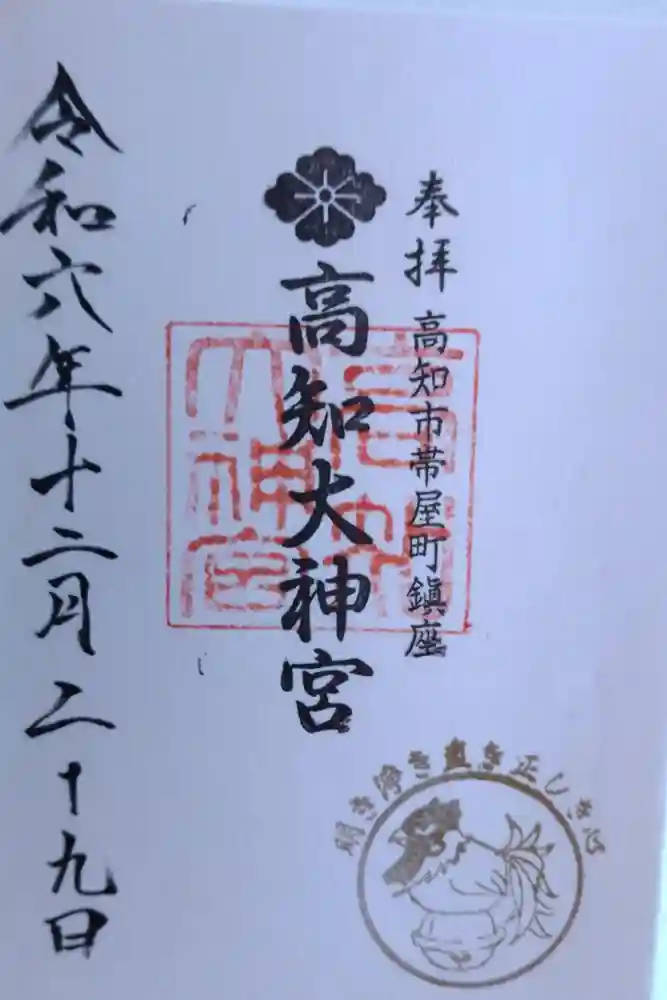 奉拝
高知市帯屋町鎮座
高知大神宮
高知大神宮
令和六年十二月二十九日
明き浄き直き正しき心